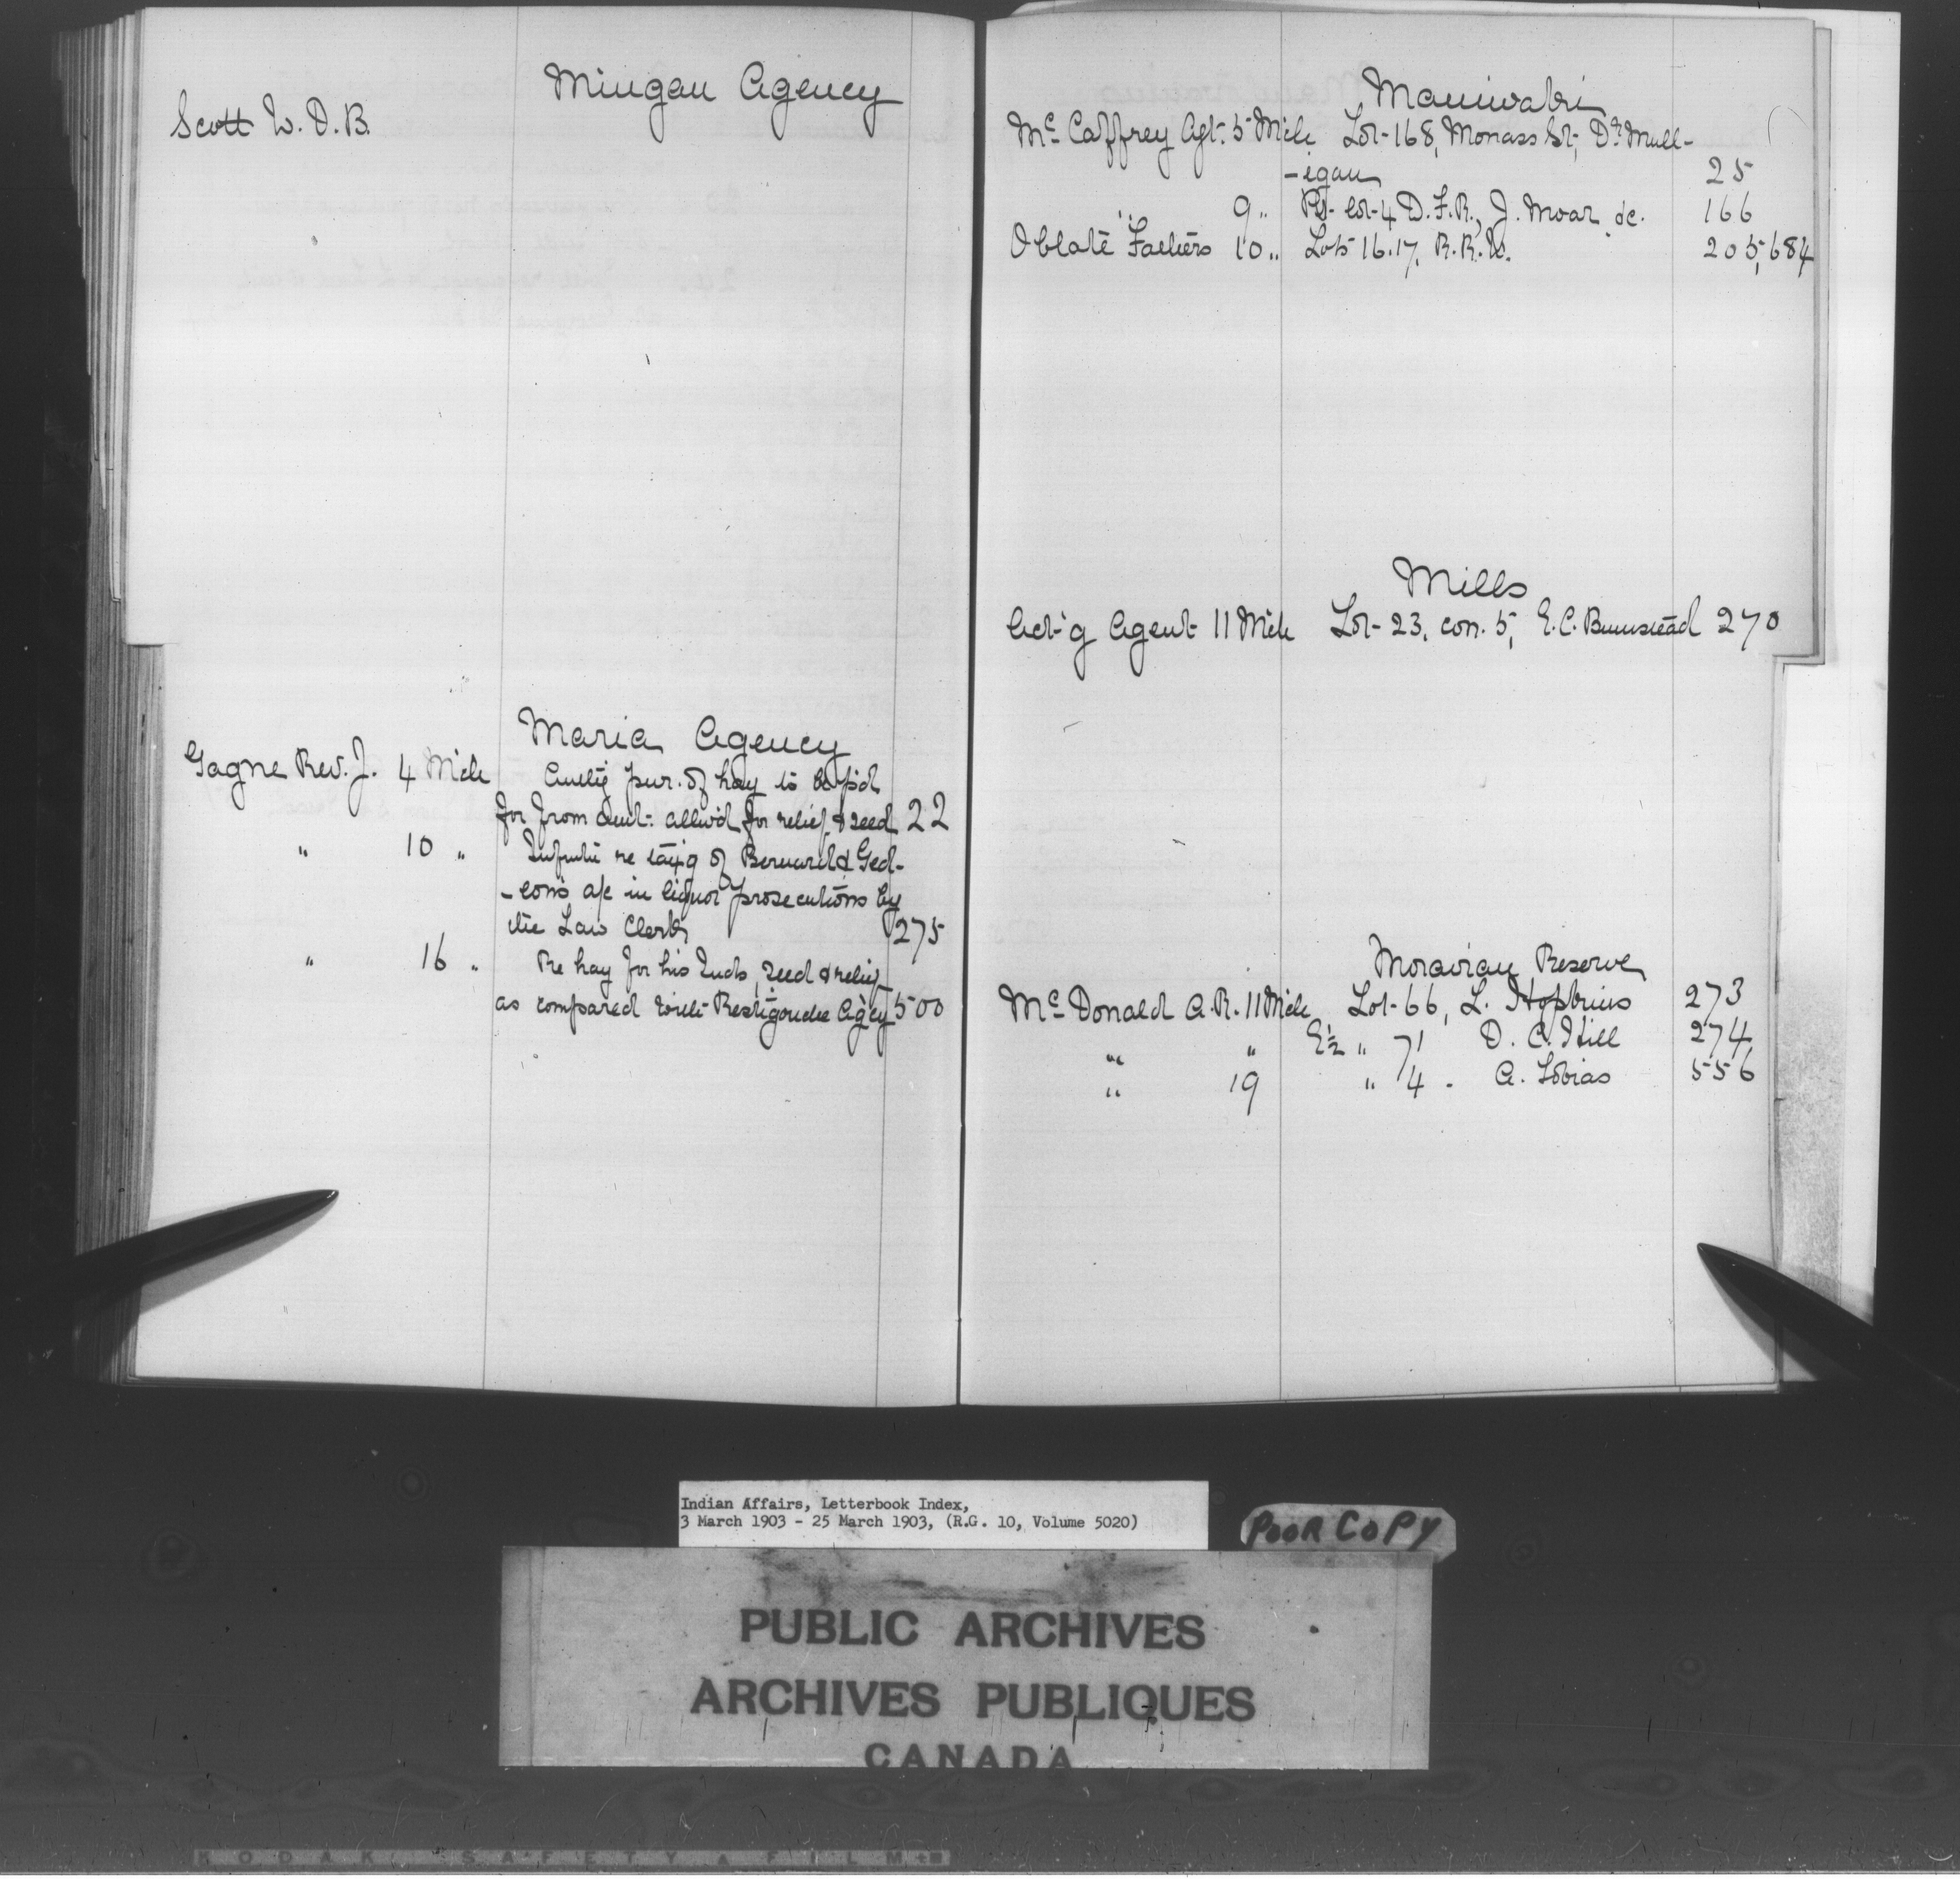 Mingan Agency
Scott W. D. B.
Maria Agency
Gagne Rev. J. 4 Mch Auth'g pur. of hay to be p'd
for from amt. allw'd for relief & seed 22
" 10 " Inf'mtn re tax'g of Bernard & Ged-
-eon's a/c in liquor prosecutions by
the Law Clerk 275
" 16 " Re hay for his Inds, seed & relief
as compared with Restigouche Ag'cy 500
Maniwaki
Mc Caffrey Agt. 5 Mch Lot 168, Monass St, Dr Mull-
-igan 25
" 9 " Pt. lot 4 D.F.R., J. Moar &c. 166
Oblate Fathers 10 " Lots 16.17, R.R.W. 205, 684
Mills
Act'g Agent 11 Mch Lot 23, con. 5, E.C. Bumstead 270
Moravian Reserve
Mc Donald A.R. 11 Mch Lot 66, L. Hopkins 273
" " E½ " 71 D. C. Hill 274
" 19 " 4 . A. Tobias 556
Indian Affairs, Letterbook Index,
3 March 1903 - 25 March 1903, (R.G. 10, Volume 5020)
POOR COPY
PUBLIC ARCHIVES
ARCHIVES PUBLIQUES
CANADA
KODAK SAFETY FILM